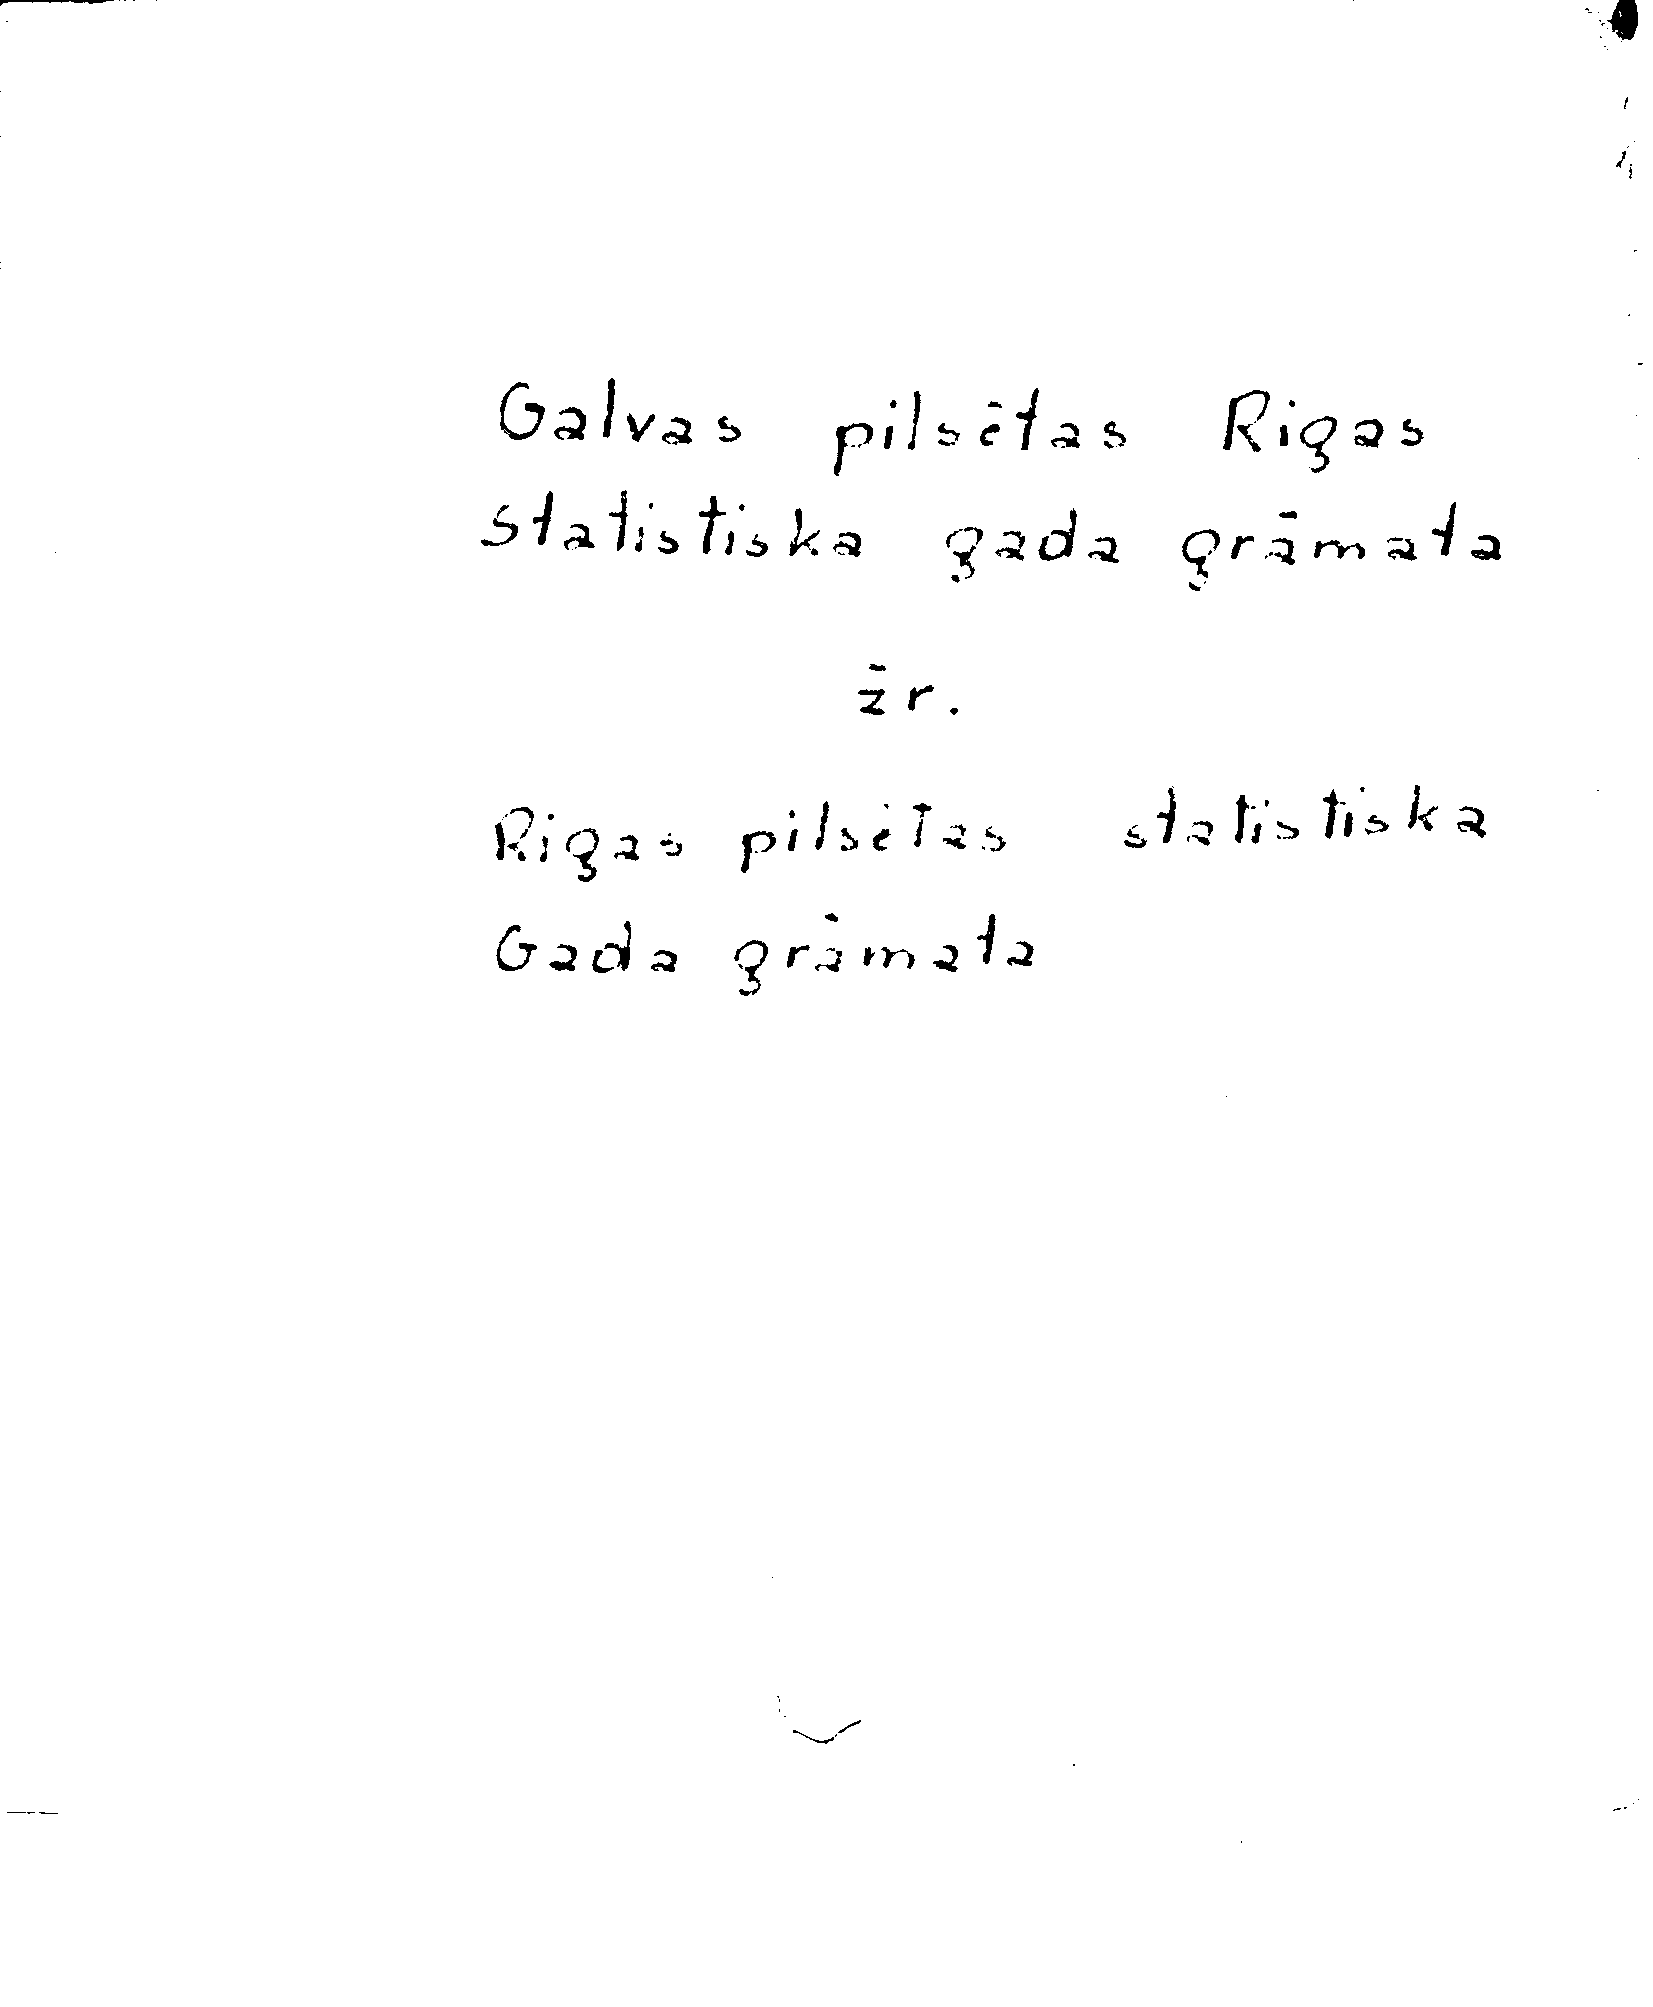 Galvas pilsētas Rigas
statistiska gada grāmata
žr.
Rigas pilsētas statistiska
Gada grāmata